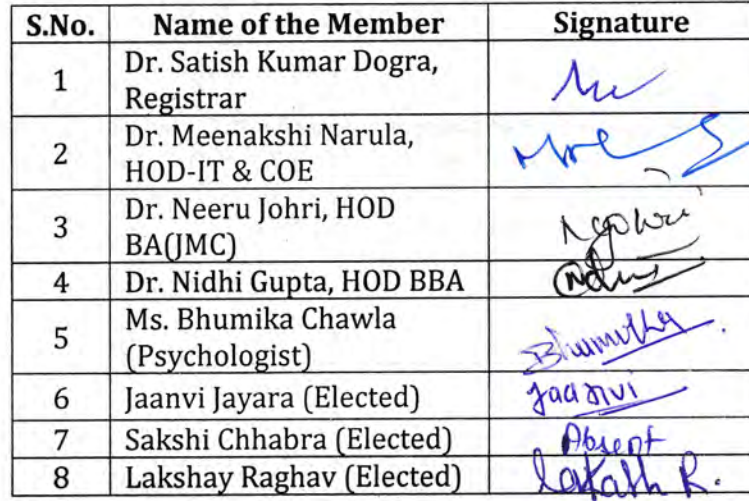 S.No. Name of the Member Signature
1 Dr. Satish Kumar Dogra,
Registrar
2 Dr. Meenakshi Narula,
HOD-IT & COE
3 Dr. Neeru Johri, HOD
BA(JMC)
4 Dr. Nidhi Gupta, HOD BBA
5 Ms. Bhumika Chawla
(Psychologist)
6 Jaanvi Jayara (Elected) Jaanvi
7 Sakshi Chhabra (Elected) Absent
8 Lakshay Raghav (Elected)